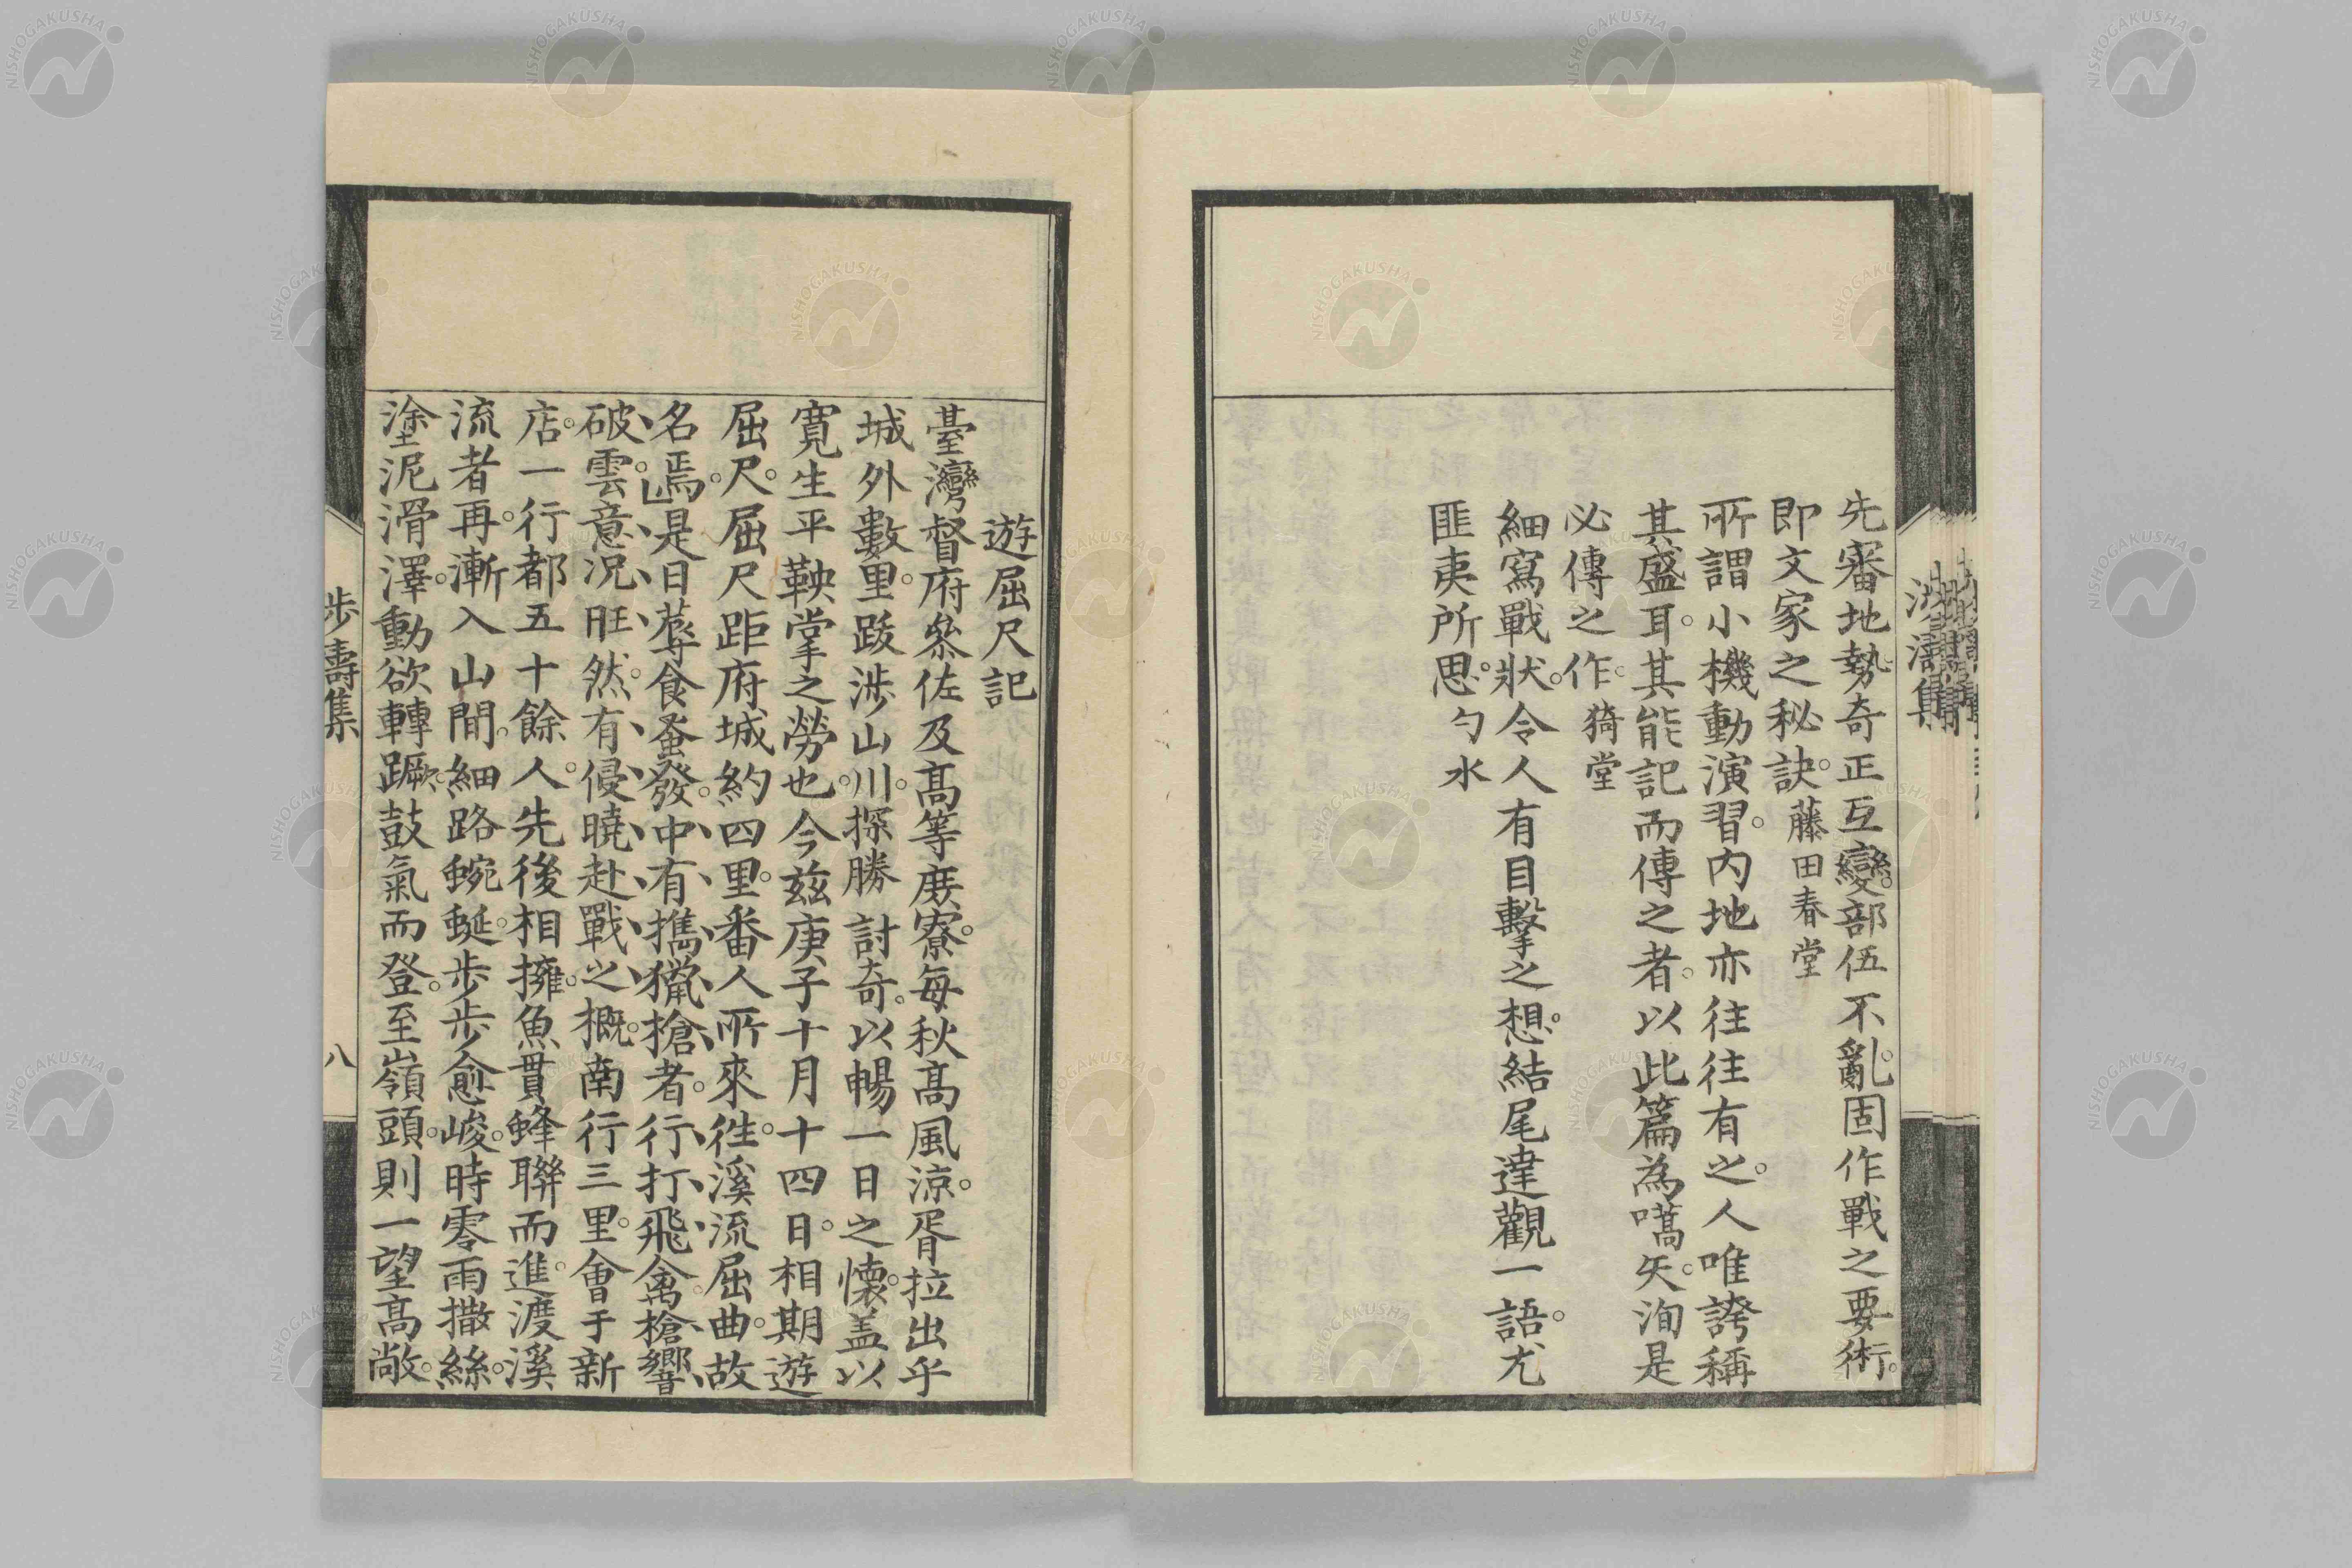 先審地勢奇正互變。部伍不亂。固作戰之要術。
即文家之秘訣。藤田春堂
所謂小機動演習。內地亦往往有之。人唯誇稱
其盛耳。其能記而傳之者。以此篇為嚆矢。洵是
必傳之作。猗堂
細寫戰狀。令人有目擊之想。結尾達觀一語。尤
匪夷所思。勺水
遊屈尺記
臺灣督府參佐及高等廣寮。每秋高風涼。胥拉出乎
城外數里。跋涉山川。探勝討奇。以暢一日之懷。盖以
寬生平鞅掌之勞也。今茲庚子十月十四日。相期遊
屈尺。屈尺距府城約四里。番人所來徃。溪流屈曲。故
名焉。是日蓐食蚤發。中有攜獵槍者。行打飛禽。槍響
破雲。意況旺然。有侵曉赴戰之概。南行三里。會于新
店。一行都五十餘人。先後相擁。魚貫蜂聯而進。渡溪
流者再。漸入山間。細路蜿蜒。步步愈峻。時零雨撒絲。
塗泥滑澤。動欲轉蹶。鼓氣而登。至嶺頭。則一望高敞。
步濤集
八
NISHOGAKUSHA